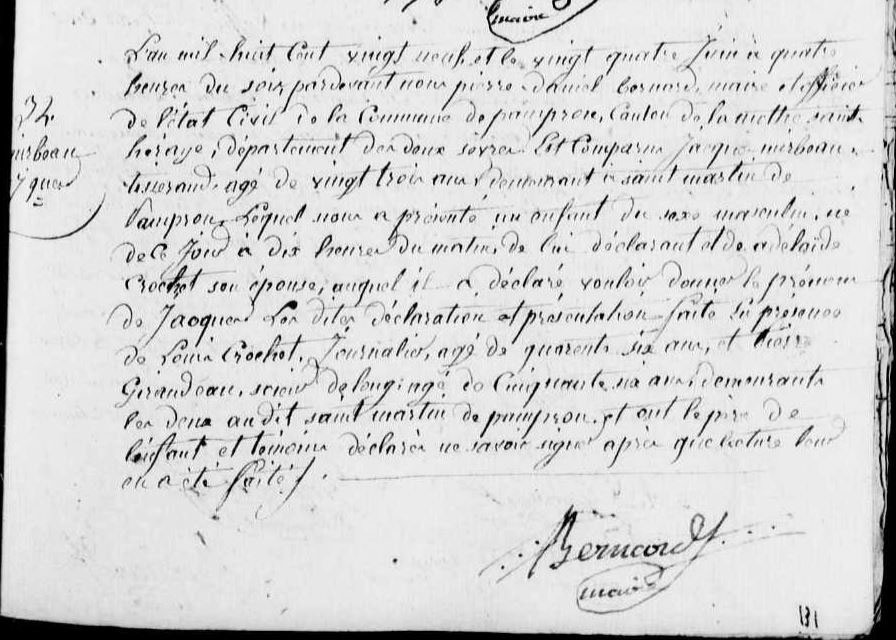 maire
L'an mil huit Cent vingt neuf et le vingt quatre Juin à quatre
heures du soir pardevant nous pierre daniel bernard, maire et officier
32
de l'état Civil de la Commune de pamprou, Canton de la mothe saint
mirbeau
heraye, département des deux sevres Est Comparu Jacques mirbeau
Jques
tisserand, agé de vingt trois ans, demeurant à saint martin de
Pamprou, Lequel nous a présenté un enfant du sexe masculin, né
de Ce Jour à dix heures du matin, de lui déclarant et de adélaide
Crochet son épouse, auquel il a déclaré vouloir donner le prénom
de Jacques Les dites déclaration et présentation faite En présence
de Louis Crochet, Journalier, agé de quarente six ans, et Pierre
Giraudeau, scieur de long, agé de Cinquante six ans, demeurants
les deux au dit saint martin de pamprou, et ont le père de
l'enfant et témoins déclarés ne savoir signer après que lecture leur
en a été faite
Bernard
maire
131